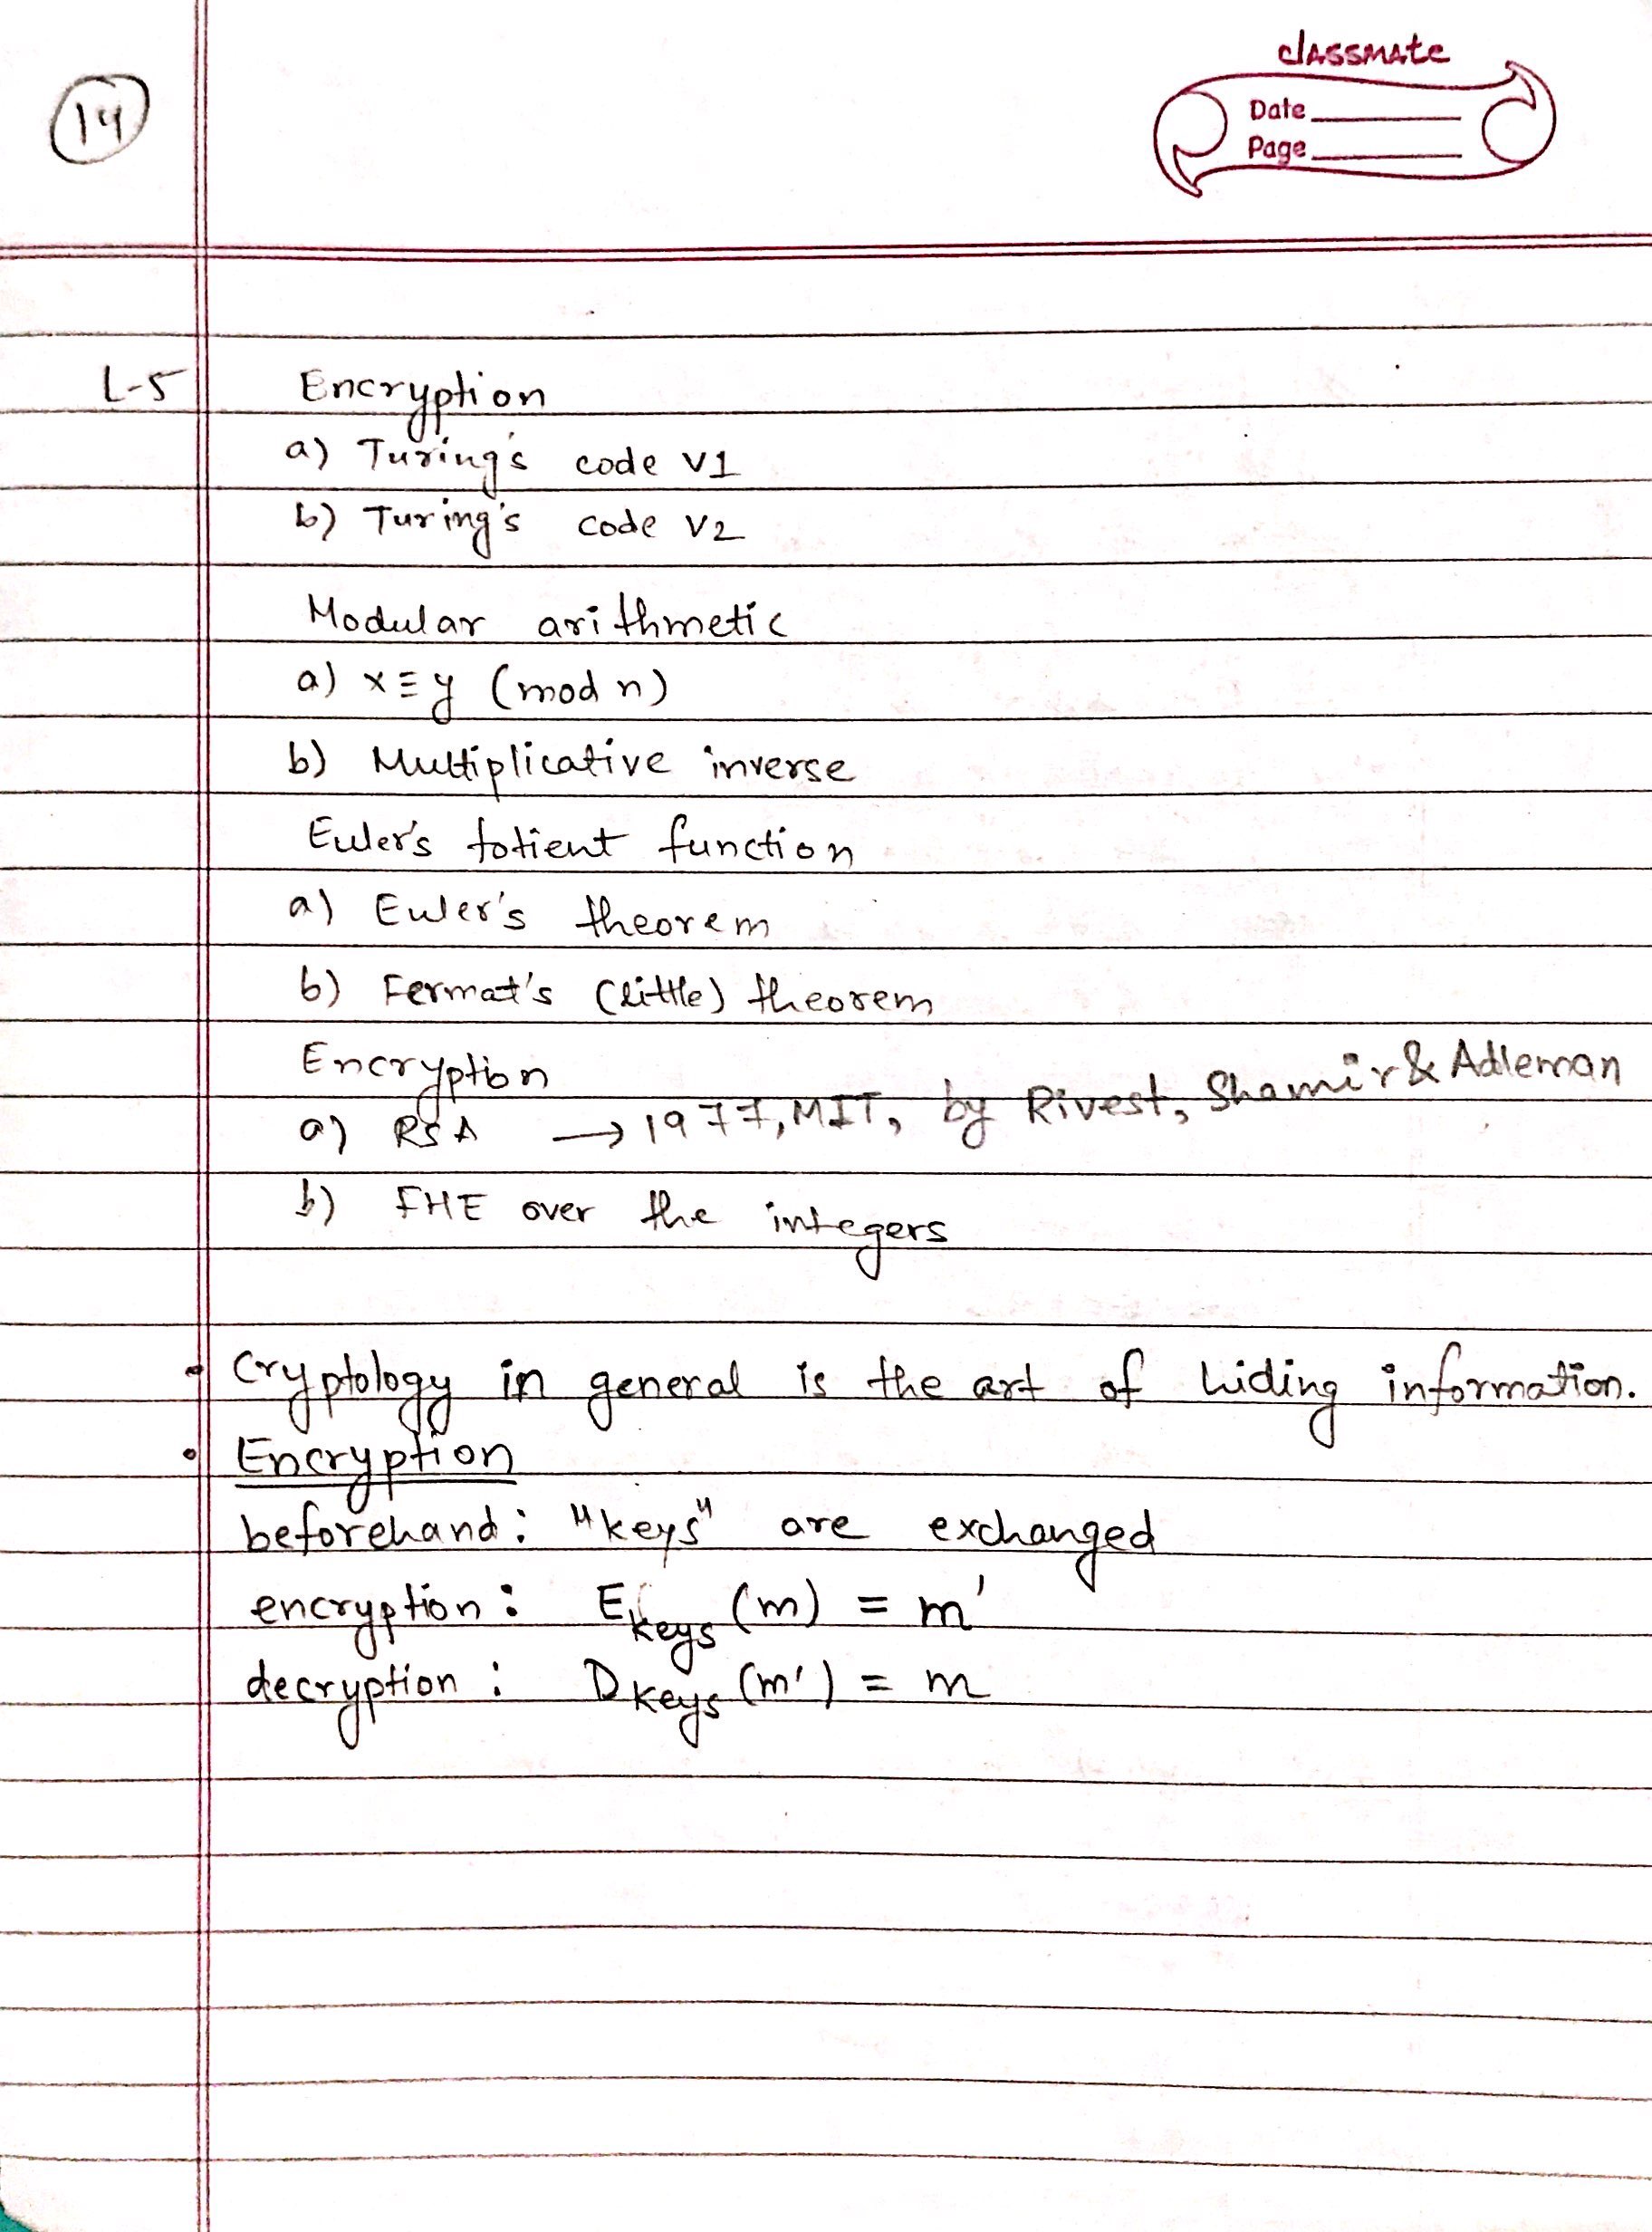 14
classmate
Date
Page
L-5 Encryption
a) Turing's code v1
b) Turing's code v2
Modular arithmetic
a) x ≡ y (mod n)
b) Multiplicative inverse
Euler's totient function
a) Euler's theorem
b) Fermat's (little) theorem
Encryption
a) RSA → 1977, MIT, by Rivest, Shamir & Adleman
b) FHE over the integers
• Cryptology in general is the art of hiding information.
• Encryption
beforehand: "keys" are exchanged
encryption: E keys (m) = m'
decryption: D keys (m') = m